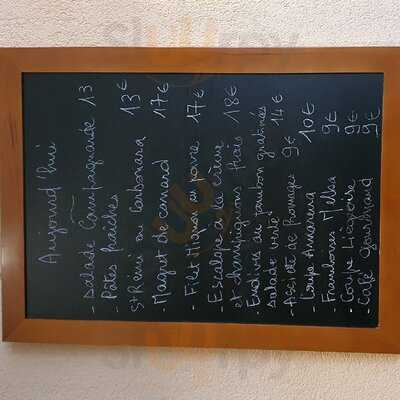 Aujourd'hui
- Salade Campagnarde 13
- Pâtes fraîches
St Rémi ou Carbonara 13€
- Magret de canard 17€
- Filet Mignon au poivre 17€
- Escalope à la crème
et champignons frais 18€
- Endives au jambon gratinées
salade verte 14€
- Assiette de fromages 9€
- Coupe 10€
- Framboises Melba 9€
- Coupe Liégeoise 9€
- Café gourmand 9€